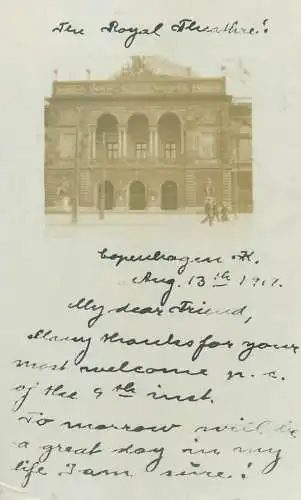 The Royal Theatre!
Copenhagen K.
Aug. 13th 1917.
My dear Friend,
Many thanks for your
most welcome p. c.
of the 9th inst.
To morrow will be
a great day in my
life. I am sure!